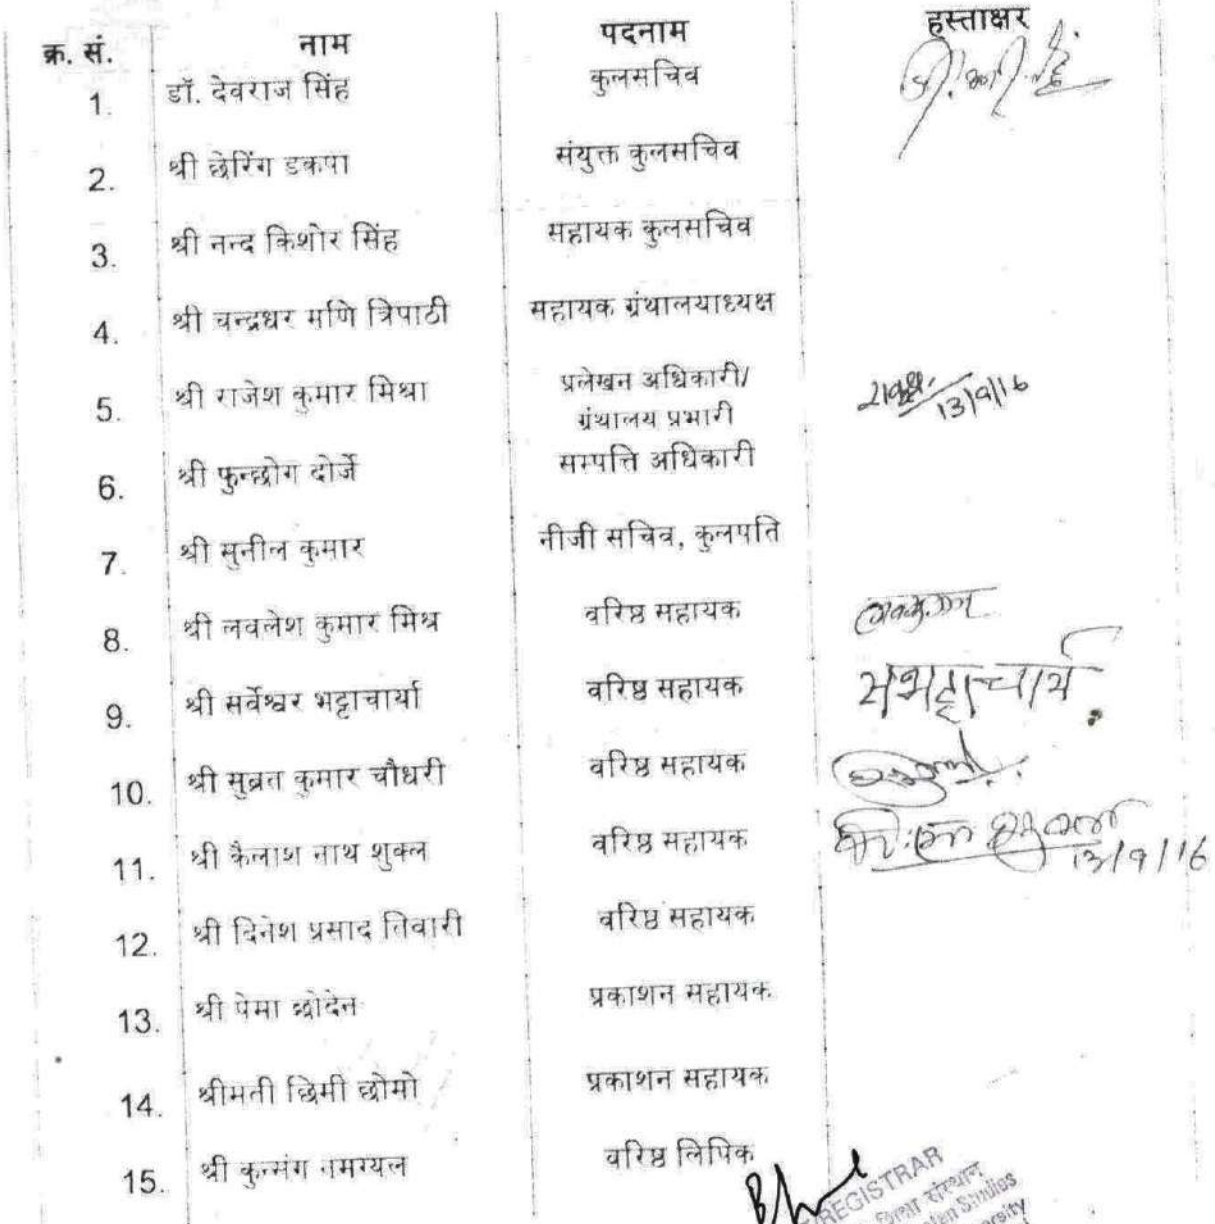 क्र. सं. नाम पदनाम हस्ताक्षर
1. डॉ. देवराज सिंह कुलसचिव
2. श्री छेरिंग डकपा संयुक्त कुलसचिव
3. श्री नन्द किशोर सिंह सहायक कुलसचिव
4. श्री चन्द्रधर मणि त्रिपाठी सहायक ग्रंथालयाध्यक्ष
5. श्री राजेश कुमार मिश्रा प्रलेखन अधिकारी/ 13/9/16
ग्रंथालय प्रभारी
6. श्री फुन्छोग दोर्जे सम्पत्ति अधिकारी
7. श्री सुनील कुमार नीजी सचिव, कुलपति
8. श्री लवलेश कुमार मिश्र वरिष्ठ सहायक
9. श्री सर्वेश्वर भट्टाचार्या वरिष्ठ सहायक सभट्टाचार्य
10. श्री सुब्रत कुमार चौधरी वरिष्ठ सहायक
11. श्री कैलाश नाथ शुक्ल वरिष्ठ सहायक 13/9/16
12. श्री दिनेश प्रसाद तिवारी वरिष्ठ सहायक
13. श्री पेमा छोदेन प्रकाशन सहायक
14. श्रीमती छिमी छोमो प्रकाशन सहायक
15. श्री कुन्संग नमग्यल वरिष्ठ लिपिक
REGISTRAR
संस्थान
Studies